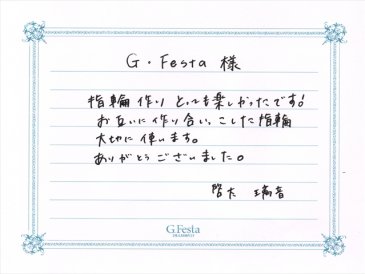 G・Festa 様
指輪作りとっても楽しかったです!
お互いに作り合いっこした指輪
大切に使います。
ありがとうございました。
啓太 瑞音
G.Festa